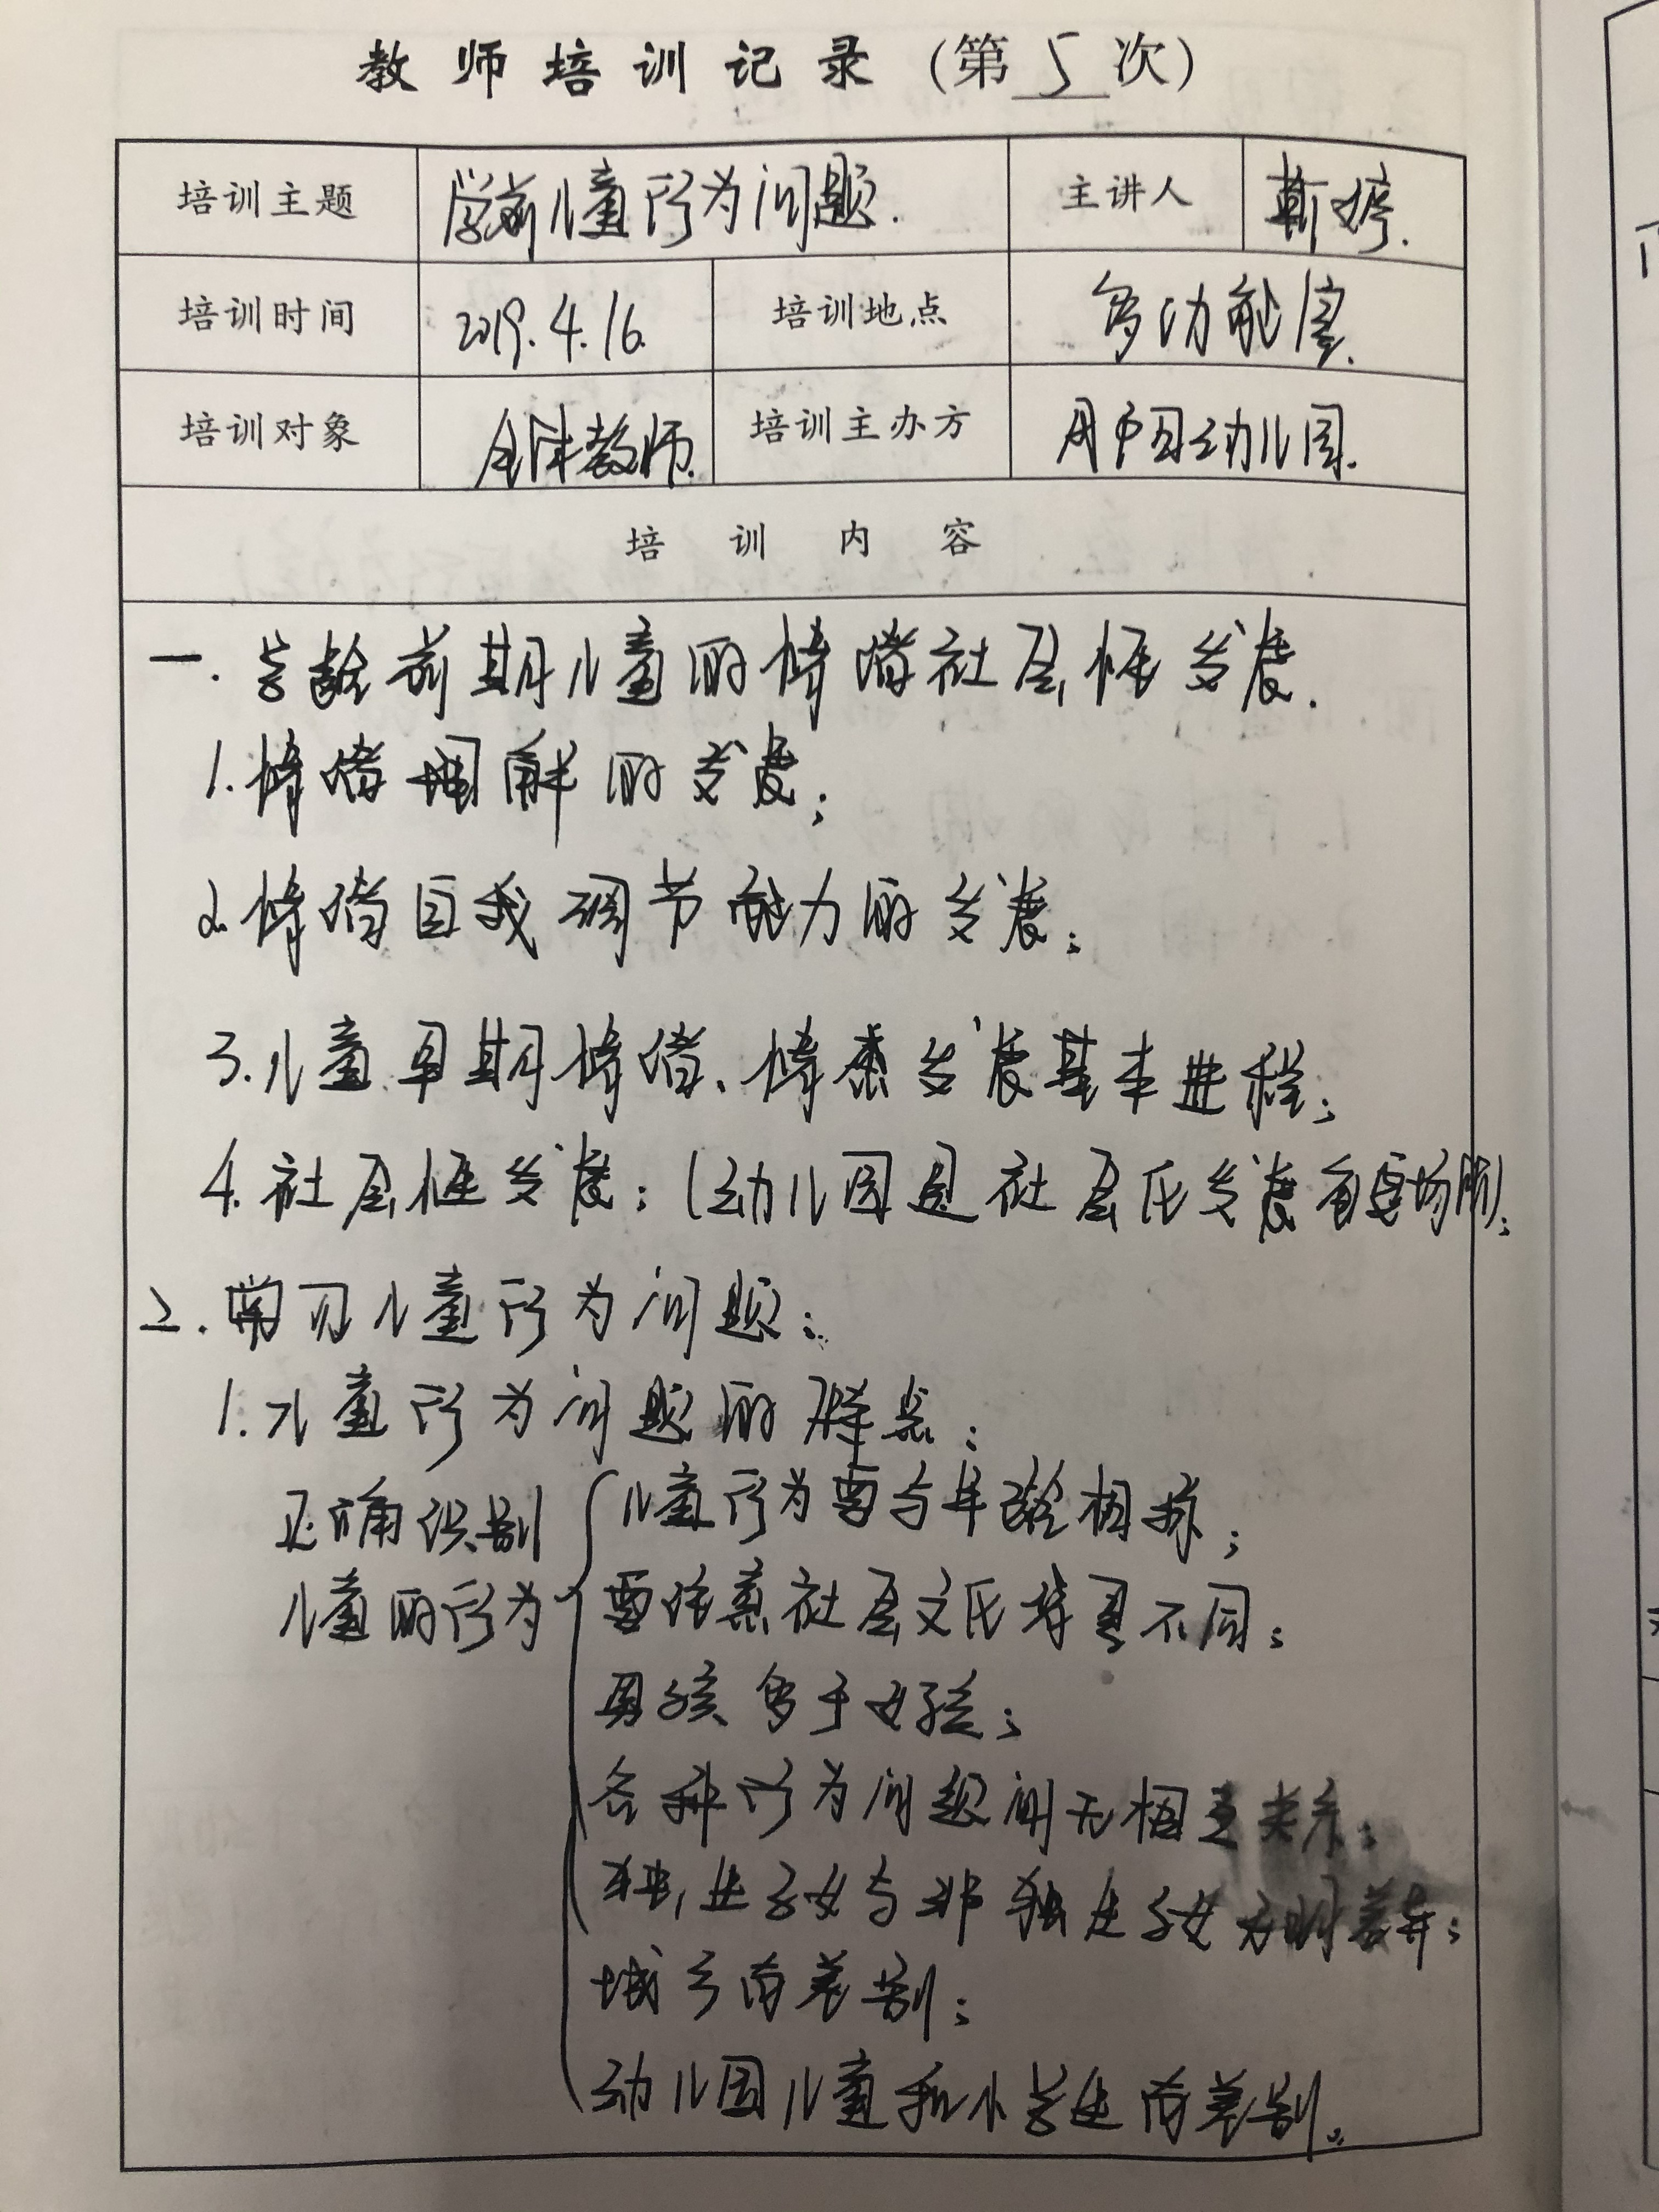 教师培训记录（第5次）
培训主题 学前儿童行为问题. 主讲人 靳婷.
培训时间 2019.4.16. 培训地点 多功能室.
培训对象 全体教师. 培训主办方 幼儿园.
培训内容
一.学龄前期儿童的情绪社会性发展.
1.情绪理解的发展;
2.情绪自我调节能力的发展;
3.儿童早期情绪、情感发展基本进程;
4.社会性发展;(幼儿园是社会化发展重要场所);
二.常见儿童行为问题;
1.儿童行为问题的特点;
正确识别
儿童的行为
儿童行为要与年龄相称;
要注意社会文化背景不同;
男孩多于女孩;
各种行为问题间无相互关系;
独生子女与非独生子女无明差异;
城乡有差别;
幼儿园儿童和小学生有差别。